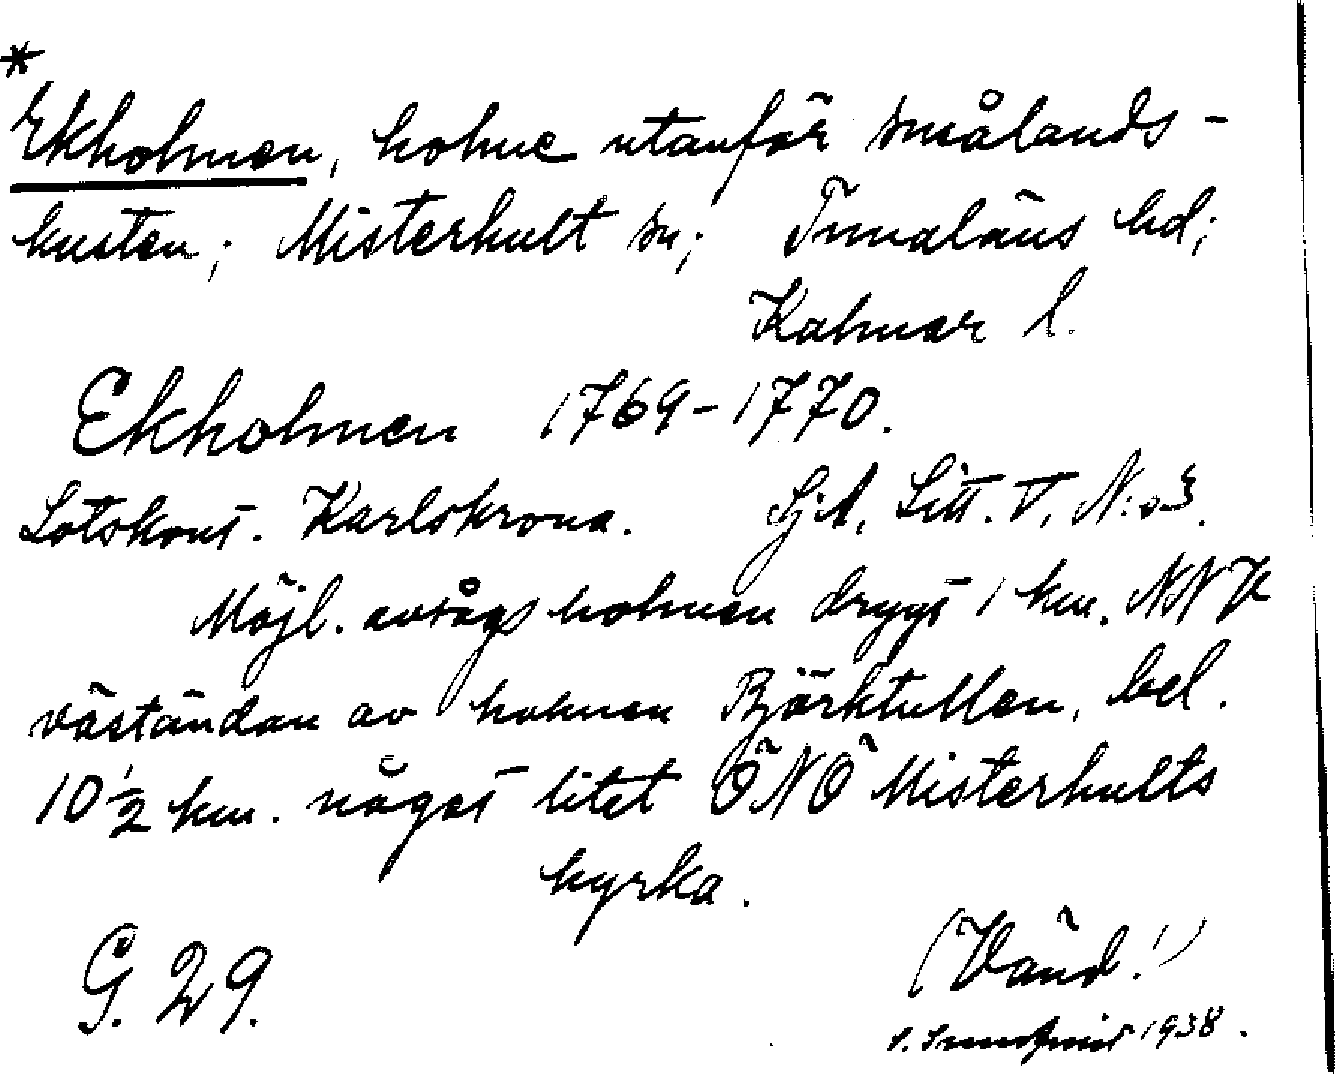 *
Ekholmen, holme utanför smålands-
kusten; Misterhult sn; Tunaläns hd;
Kalmar l.
Ekholmen 1769-1770.
Lotskont. Karlskrona. Sjö Litt. V, N:o 3.
Möjl. avsågs holmen drygt 1 km. NNV
väständan av holmen Björktullen, bel.
10 1/2 km. något litet ÖNÖ Misterhults
kyrka.
G. 29.
(Vänd!)
1938.